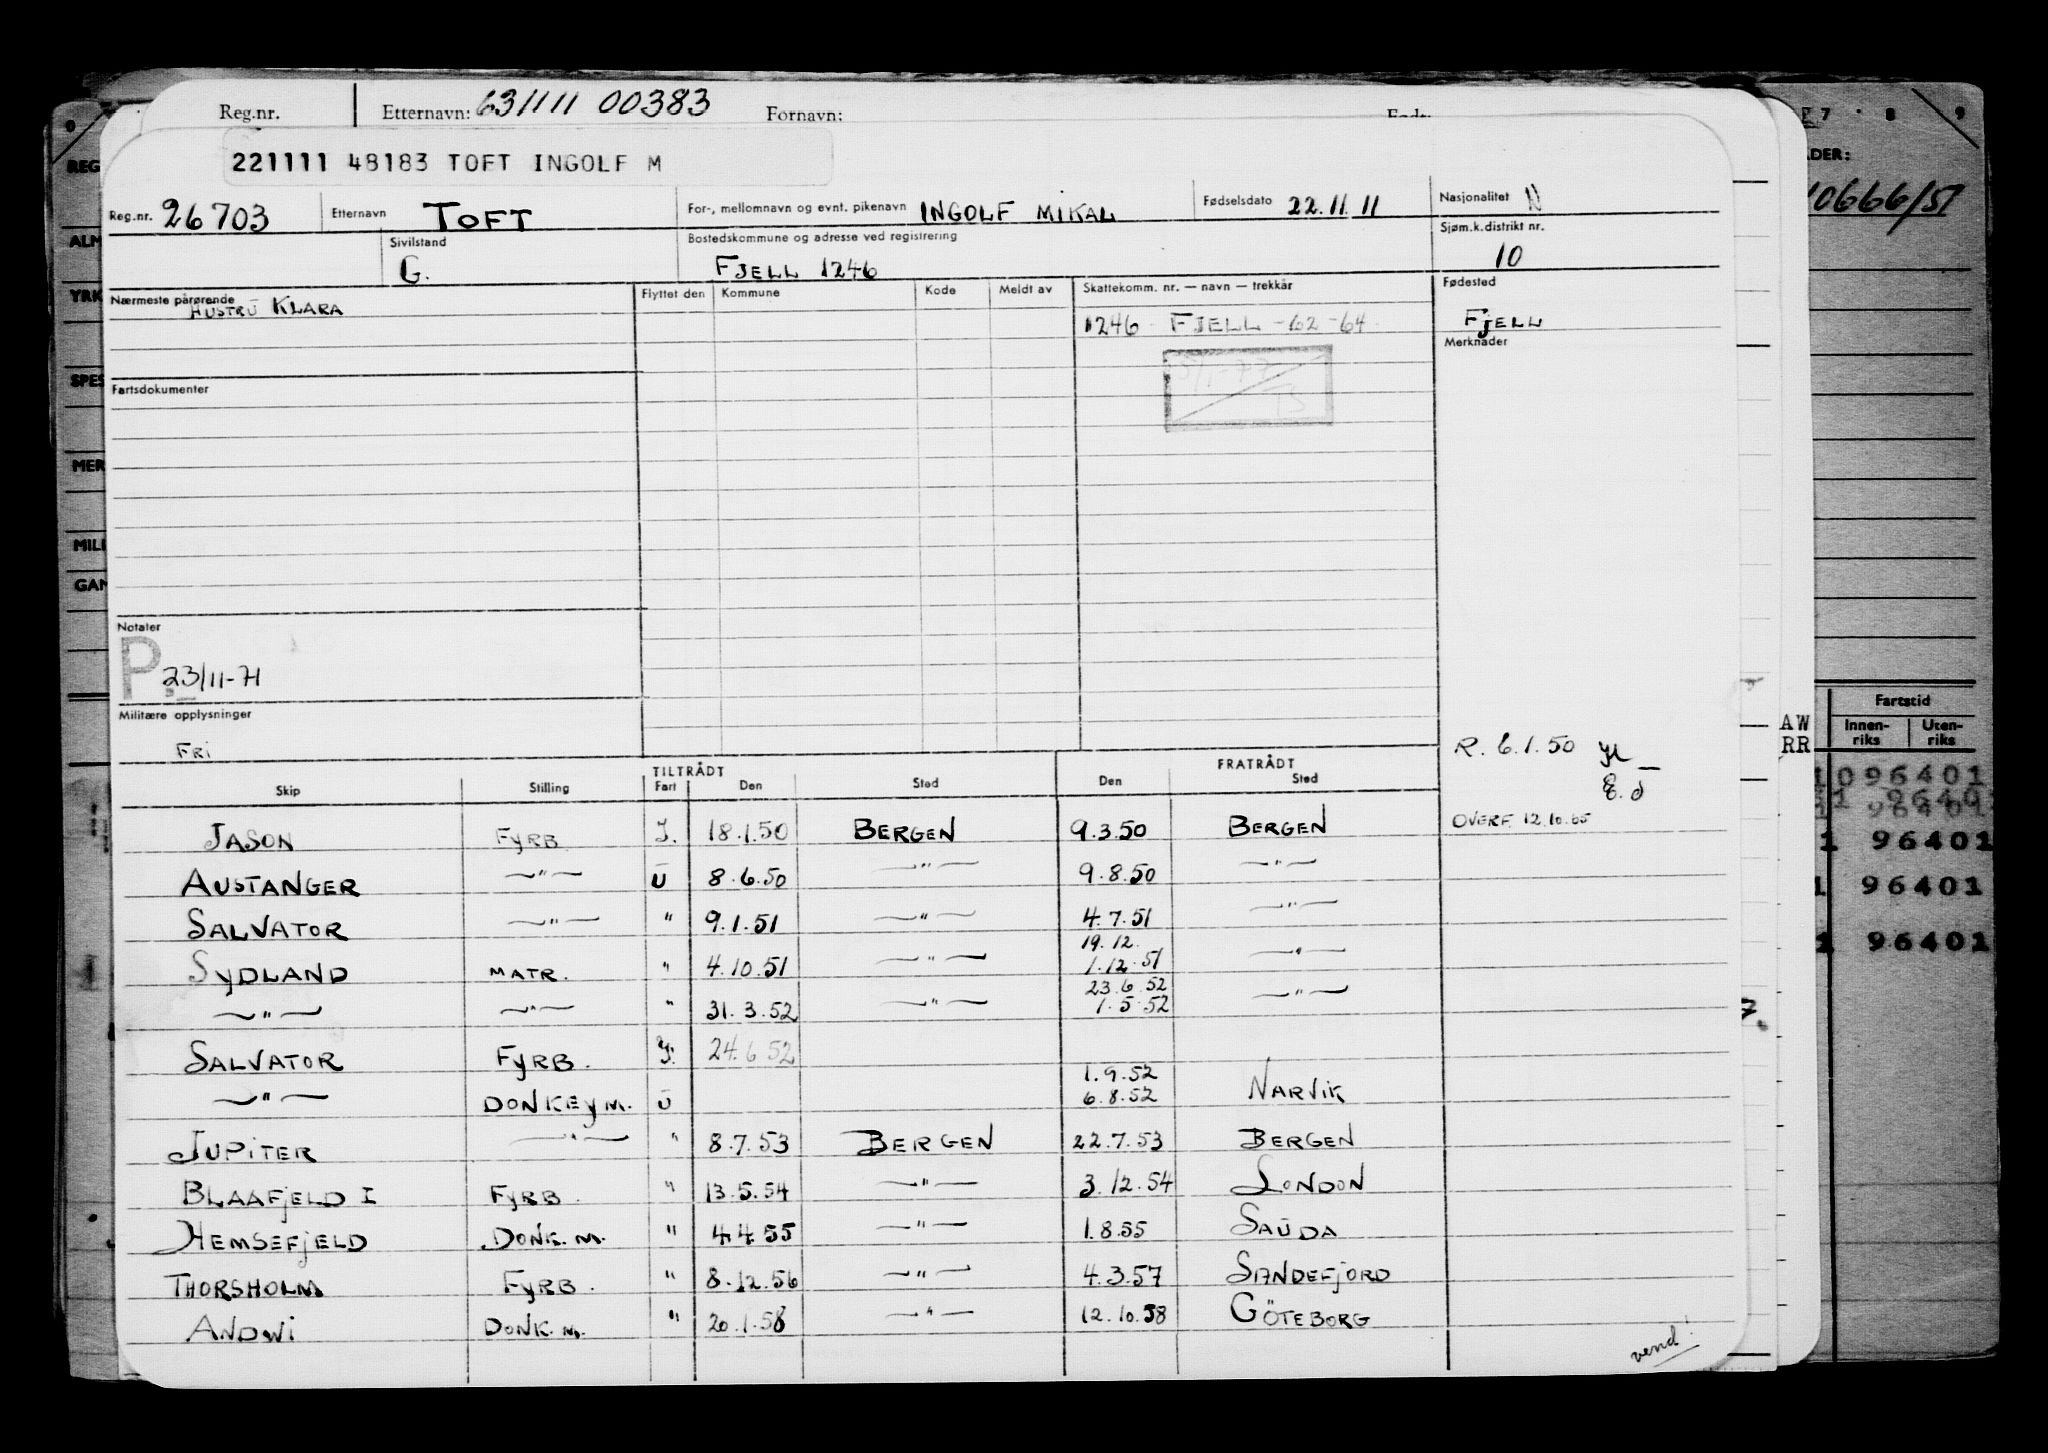 Reg.nr. Etternavn: 631111 00383 Fornavn:
221111 48183 TOFT INGOLF M
Reg.nr. 26703 Etternavn TOFT For-, mellomnavn og evnt. pikenavn INGOLF MIKAL Fødselsdato 22.11.11 Nasjonalitet N
Sivilstand G. Bostedskommune og adresse ved registrering FJELL 1246 Sjøm.k.distrikt nr. 10
Nærmeste pårørende HUSTRU KLARA Flyttet den Kommune Kode Meldt av Skattekomm. nr. — navn — trekkår Fødested
1246 FJELL -62-64 FJELL
Merknader
Fartsdokumenter
Notater
P 23/11-71
Militære opplysninger
FRI
R. 6.1.50
E.d
TILTRÅDT FRATRÅDT
Skip Stilling Fart Den Sted Den Sted
JASON FYRB I. 18.1.50 BERGEN 9.3.50 BERGEN OVERF. 12.10.65
AUSTANGER —"— U 8.6.50 —"— 9.8.50 —"—
SALVATOR —"— " 9.1.51 —"— 4.7.51 —"—
19.12.
SYDLAND MATR. " 4.10.51 —"— 1.12.51 —"—
23.6.52
—"— —"— " 31.3.52 —"— 1.5.52 —"—
SALVATOR FYRB. I. 24.6.52
1.9.52
—"— DONKEYM. U 6.8.52 NARVIK
JUPITER —"— " 8.7.53 BERGEN 22.7.53 BERGEN
BLAAFJELD I FYRB. " 13.5.54 —"— 3.12.54 LONDON
HEMSEFJELD DONK.M. " 4.4.55 —"— 1.8.55 SAUDA
THORSHOLM FYRB. " 8.12.56 —"— 4.3.57 SANDEFJORD
ANDWI DONK.M. " 20.1.58 —"— 12.10.58 GÖTEBORG
vend!
9
REG
ALM
YRK
SPES
MER
MILI
GAN
7 8 9
ADER:
10666/51
Fartstid
Innen-riks Uten-riks
AW
RR
1096401
1 96401
1 96401
1 96401